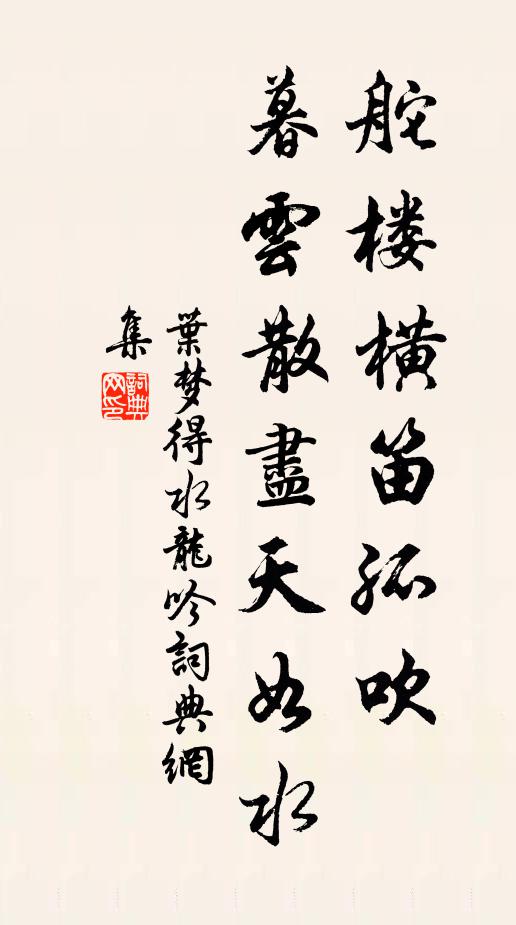 舵楼横笛孤吹
暮雲散盡天如水
葉梦得水龍吟詞典網
集
詞典
网印